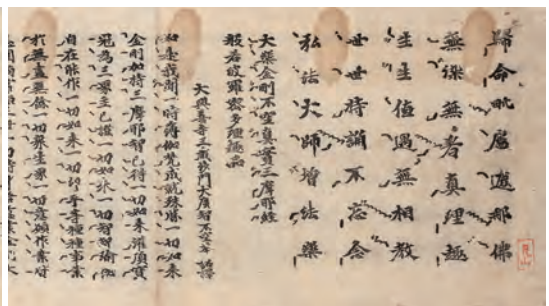 歸命毗盧遮那佛
無染無著真理趣
生生值遇無相教
世世持誦不忘念
弘法大師增法樂
大樂金剛不空真實三摩耶經
般若波羅蜜多理趣品
大興善寺三藏沙門大廣智不空奉 詔譯
如是我聞一時薄伽梵成就殊勝一切如來
金剛加持三摩耶智已得一切如來灌頂寶
冠為三界主已證一切如來一切智智瑜伽
自在能作一切如來一切印平等種種事業
於無盡無餘一切衆生界一切意願作業皆